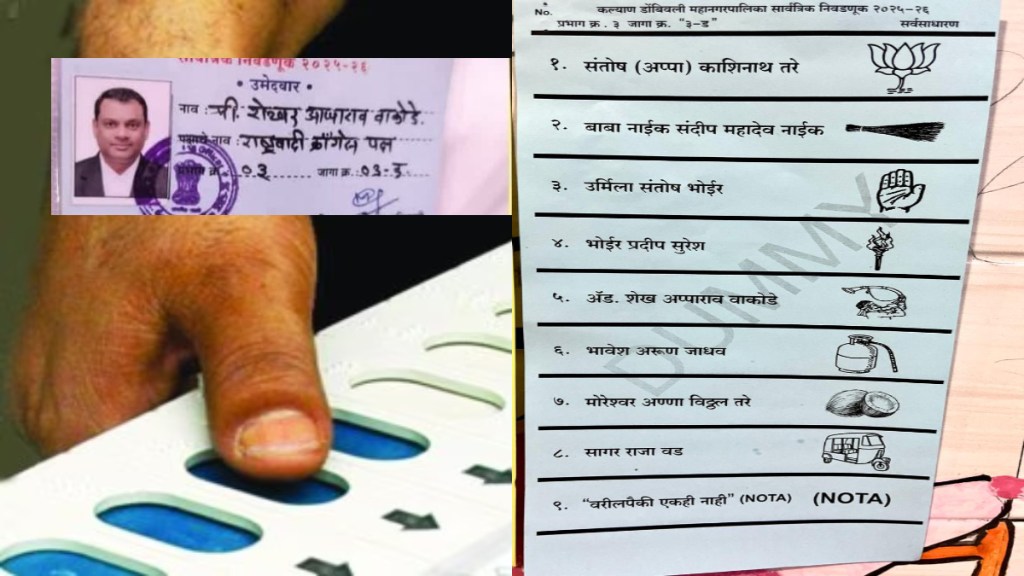 सार्वत्रिक निवडणूक २०२५-२६
• उमेदवार •
नाव :
पक्षाचे नाव : राष्ट्रवादी काँग्रेस पक्ष
प्रभाग क्र. ०३ जागा क्र. ०३-ड
No. कल्याण डोंबिवली महानगरपालिका सार्वत्रिक निवडणूक २०२५-२६
प्रभाग क्र. ३ जागा क्र. "३-ड" सर्वसाधारण
१. संतोष (अप्पा) काशिनाथ तरे
२. बाबा नाईक संदीप महादेव नाईक
३. उर्मिला संतोष भोईर
४. भोईर प्रदीप सुरेश
५. ॲड. शेख अप्पाराव वाकोडे
६. भावेश अरूण जाधव
७. मोरेश्वर अण्णा विठ्ठल तरे
८. सागर राजा वड
९. "वरीलपैकी एकही नाही" (NOTA) (NOTA)
DUMMY